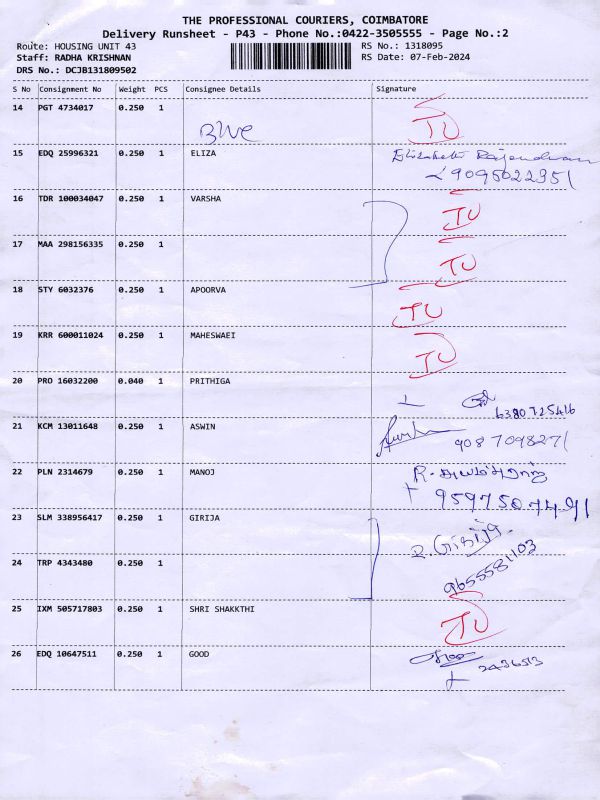 THE PROFESSIONAL COURIERS, COIMBATORE
Delivery Runsheet - P43 - Phone No.:0422-3505555 - Page No.:2
Route: HOUSING UNIT 43 RS No.: 1318095
Staff: RADHA KRISHNAN RS Date: 07-Feb-2024
DRS No.: DCJB131809502
S No Consignment No Weight PCS Consignee Details Signature
14 PGT 4734017 0.250 1 TU
15 EDQ 25996321 0.250 1 ELIZA Elizabeth Rajendran
9095022951
16 TDR 100034047 0.250 1 VARSHA TU
17 MAA 298156335 0.250 1 TU
18 STY 6032376 0.250 1 APOORVA TU
19 KRR 600011024 0.250 1 MAHESWAEI TU
20 PRO 16032200 0.040 1 PRITHIGA
6380725416
21 KCM 13011648 0.250 1 ASWIN 9087098271
22 PLN 2314679 0.250 1 MANOJ
9597507491
23 SLM 338956417 0.250 1 GIRIJA R. Girija
24 TRP 4343480 0.250 1 9655581103
25 IXM 505717803 0.250 1 SHRI SHAKKTHI TU
26 EDQ 10647511 0.250 1 GOOD 2436513